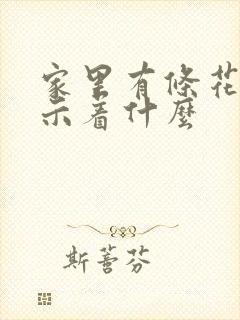 家里有條花
示着什麼
斯蕾芬